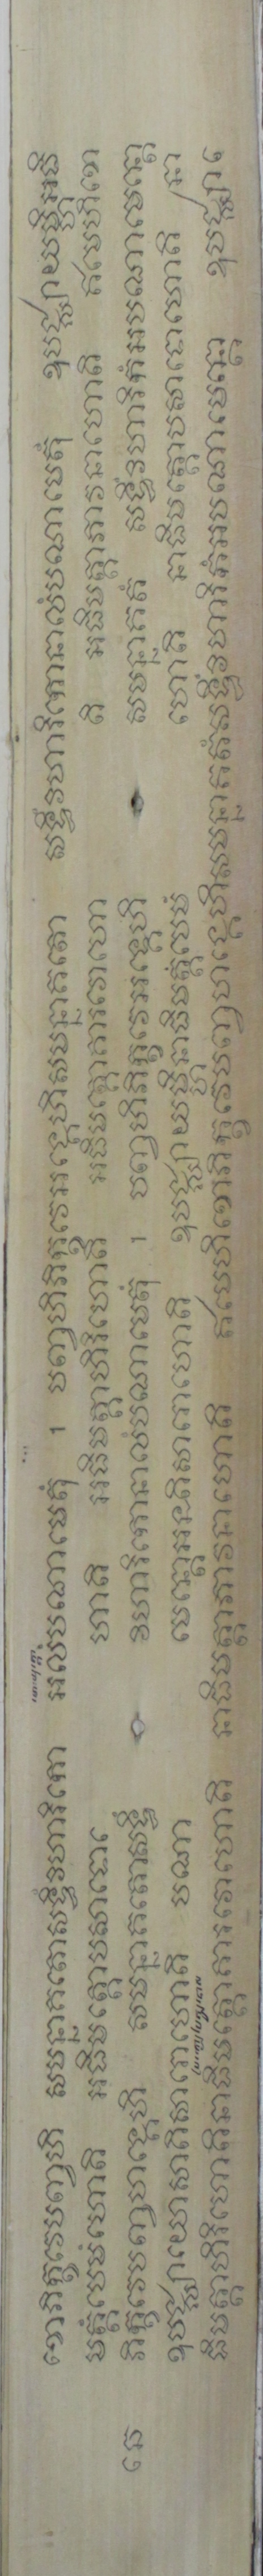 ខោភិក្ខវេបញ្ចហិ សមន្នាគតោសទ្ធិំវិហារិកោ អលំបណាមេតុំ ។ បញ្ចហិភិក្ខវេអង្គេហិសមន្នាគតោ សទ្ធិំវិហារិកោនាលំបណាមេតុំ ឧបជ្ឈាយម្ហិអធិ
មត្តំបេមំហោតិ អធិមត្តោបសាទោ ហោតិ អធិមត្តាហិរិហោតិ អធិមត្តោគារវោហោ តិ អធិមត្តាភាវនាហោតិ ឥមេហិខោ
ភិក្ខវេបញ្ចហង្គេហិ សមន្នាគតោសទ្ធិំ វិហារិកោនាលំបណាមេតុំ ។ បញ្ចហិភិក្ខវេអង្គេហិ សមន្នាគតំ សទ្ធិំវិហារិកំអបណាមេន្តោ
ឧបជ្ឈាយោសាតិសារោហោតិ បណា មេន្តោអនតិសារោហោតិ ឧបជ្ឈាយម្ហិនាធិមត្តំបេមំ ហោតិ នាធិមត្តោបសាទោហោតិ នា
ធិមត្តាហិរិហោតិនាធិមត្តោគារវោហោតិ នាធិមត្តាភាវនាហោតិ ឥមេហិខោភិក្ខវេបញ្ចហង្គេហិសមន្នាគតំសទ្ធិំវិហារិកំអបណាមេន្តោ ឧបជ្ឈាយោ